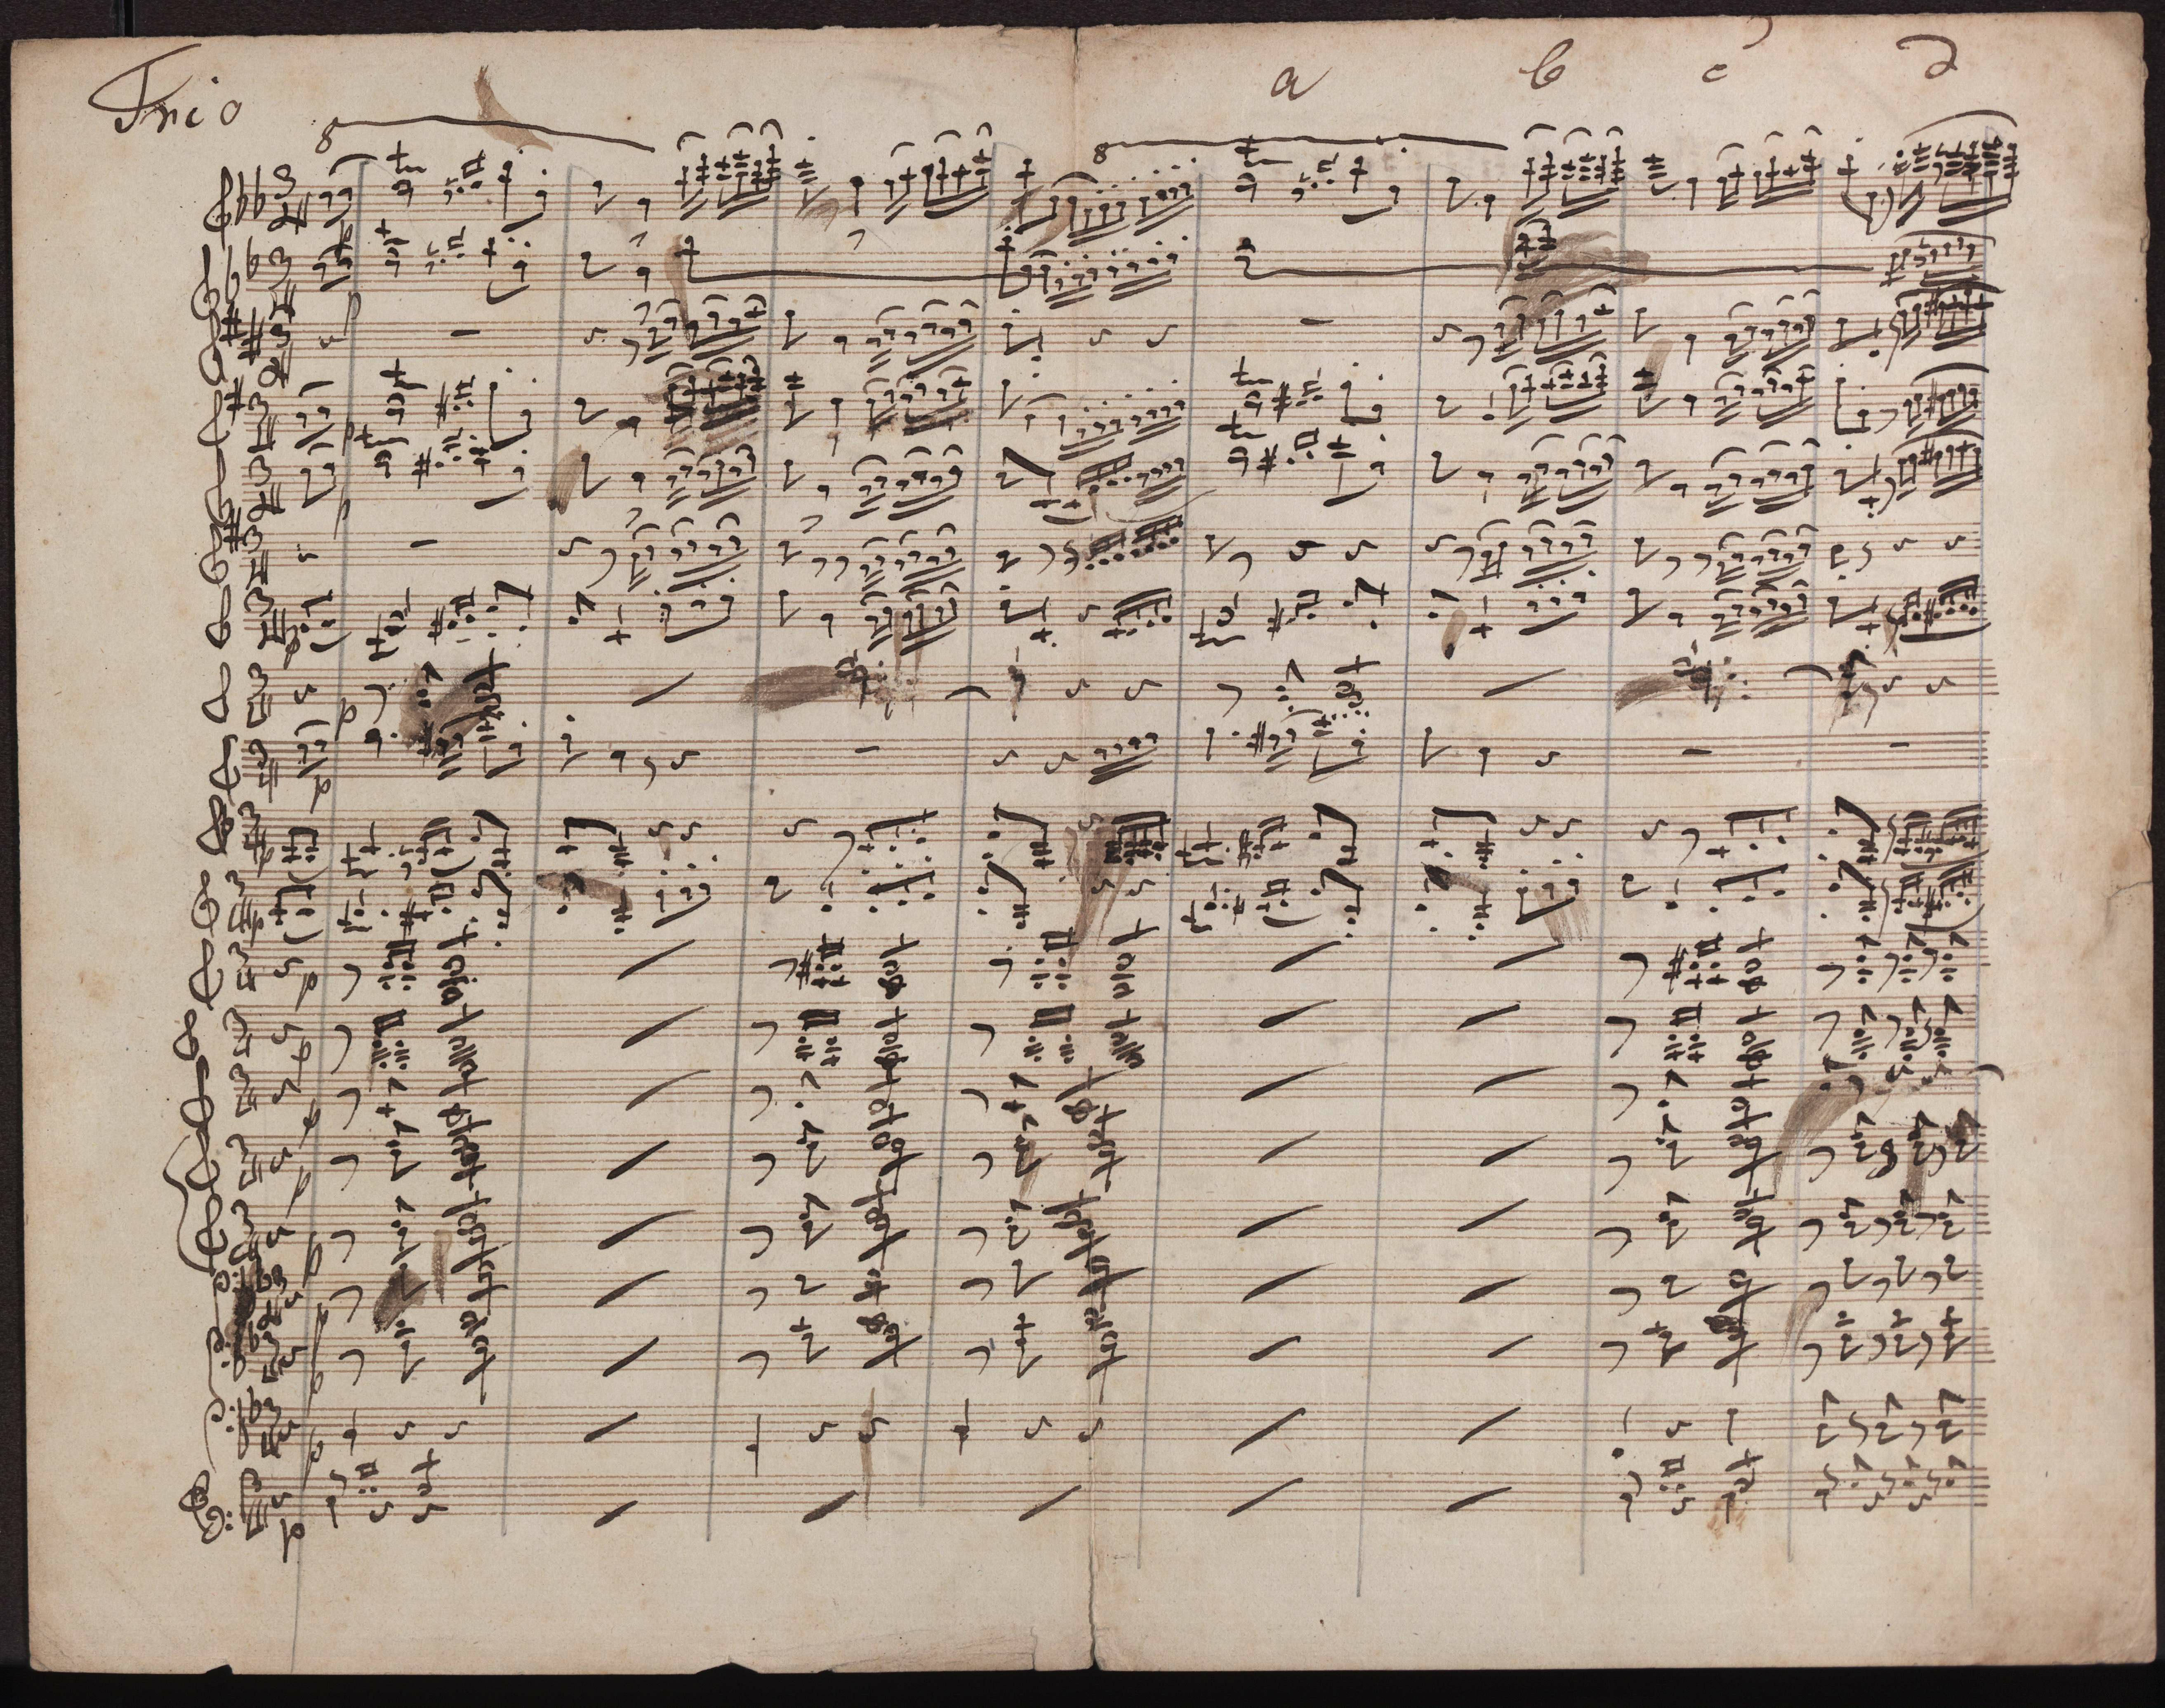 Trio
a b c d
8 8